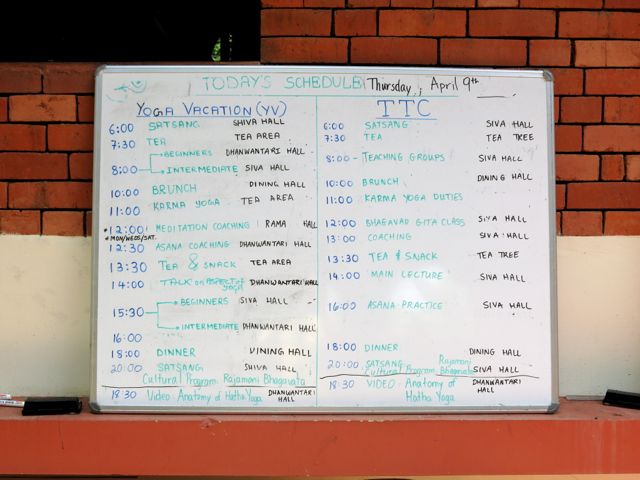 TODAY'S SCHEDULE Thursday, April 9th
YOGA VACATION (YV)
6:00 SATSANG SHIVA HALL
7:30 TEA TEA AREA
8:00 BEGINNERS DHANWANTARI HALL
INTERMEDIATE SIVA HALL
10:00 BRUNCH DINING HALL
11:00 KARMA YOGA TEA AREA
*12:00 MEDITATION COACHING RAMA HALL
*MON/WEDS/SAT.
12:30 ASANA COACHING DHANWANTARI HALL
13:30 TEA & SNACK TEA AREA
14:00 TALK ON ASPECT OF YOGA DHANWANTARI HALL
15:30 BEGINNERS SIVA HALL
INTERMEDIATE DHANWANTARI HALL
16:00
18:00 DINNER DINING HALL
20:00 SATSANG SHIVA HALL
Cultural Program: Rajamani Bhagavata
18:30 Video: Anatomy of Hatha Yoga DHANWANTARI HALL
TTC
6:00 SATSANG SIVA HALL
7:30 TEA TEA TREE
8:00 - TEACHING GROUPS SIVA HALL
10:00 BRUNCH DINING HALL
11:00 KARMA YOGA DUTIES
12:00 BHAGAVAD GITA CLASS SIVA HALL
13:00 COACHING SIVA HALL
13:30 TEA & SNACK TEA TREE
14:00 MAIN LECTURE SIVA HALL
16:00 ASANA PRACTICE SIVA HALL
18:00 DINNER DINING HALL
20:00 SATSANG SIVA HALL
Cultural Program, Rajamani Bhagavata
18:30 VIDEO: Anatomy of Hatha Yoga DHANWANTARI HALL